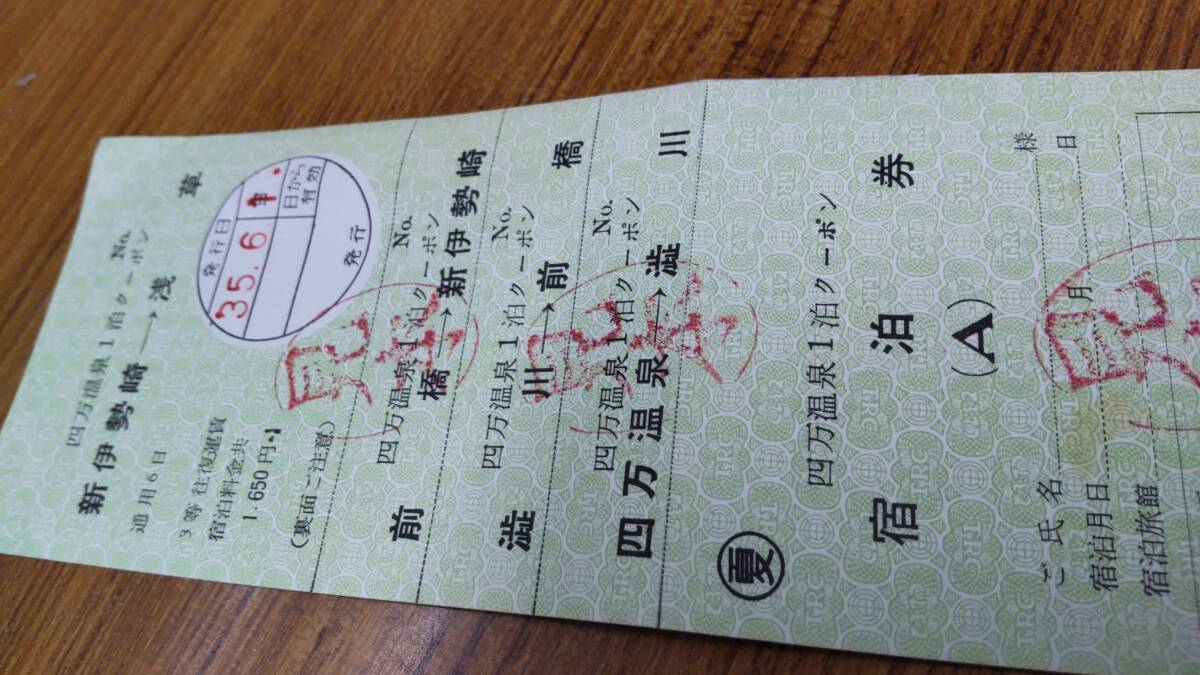 四万温泉1泊クーポン No.
新伊勢崎→浅草
通用6日
3等往復運賃
宿泊料金共
1,650円
(裏面ご注意)
発行日
35.6.
日から
有効
発行
四万温泉1泊クーポン No.
前橋→新伊勢崎
四万温泉1泊クーポン No.
澁川→前橋
四万温泉1泊クーポン No.
四万温泉→澁川
夏
四万温泉1泊クーポン
宿泊券
(A)
ご氏名 様
宿泊月日 月 日
宿泊旅館
見本
見本
見